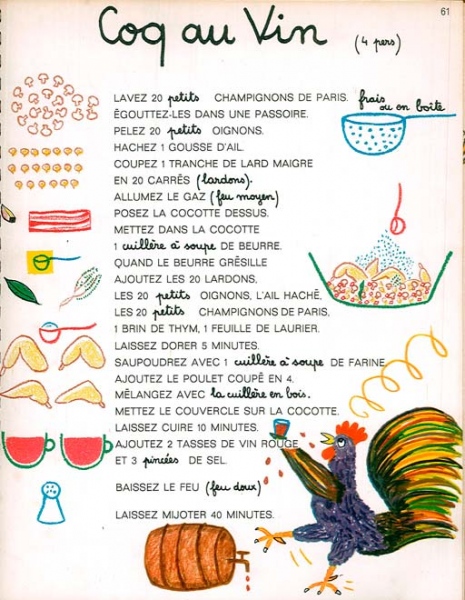 61
Coq au Vin (4 pers)
LAVEZ 20 petits CHAMPIGNONS DE PARIS. frais ou en boîte
ÉGOUTTEZ-LES DANS UNE PASSOIRE.
PELEZ 20 petits OIGNONS.
HACHEZ 1 GOUSSE D'AIL.
COUPEZ 1 TRANCHE DE LARD MAIGRE
EN 20 CARRÉS (lardons).
ALLUMEZ LE GAZ (feu moyen)
POSEZ LA COCOTTE DESSUS.
METTEZ DANS LA COCOTTE
1 cuillère à soupe DE BEURRE.
QUAND LE BEURRE GRÉSILLE
AJOUTEZ LES 20 LARDONS,
LES 20 petits OIGNONS, L'AIL HACHÉ,
LES 20 petits CHAMPIGNONS DE PARIS,
1 BRIN DE THYM, 1 FEUILLE DE LAURIER.
LAISSEZ DORER 5 MINUTES.
SAUPOUDREZ AVEC 1 cuillère à soupe DE FARINE
AJOUTEZ LE POULET COUPÉ EN 4.
MÉLANGEZ AVEC la cuillère en bois.
METTEZ LE COUVERCLE SUR LA COCOTTE.
LAISSEZ CUIRE 10 MINUTES.
AJOUTEZ 2 TASSES DE VIN ROUGE
ET 3 pincées DE SEL.
BAISSEZ LE FEU (feu doux)
LAISSEZ MIJOTER 40 MINUTES.